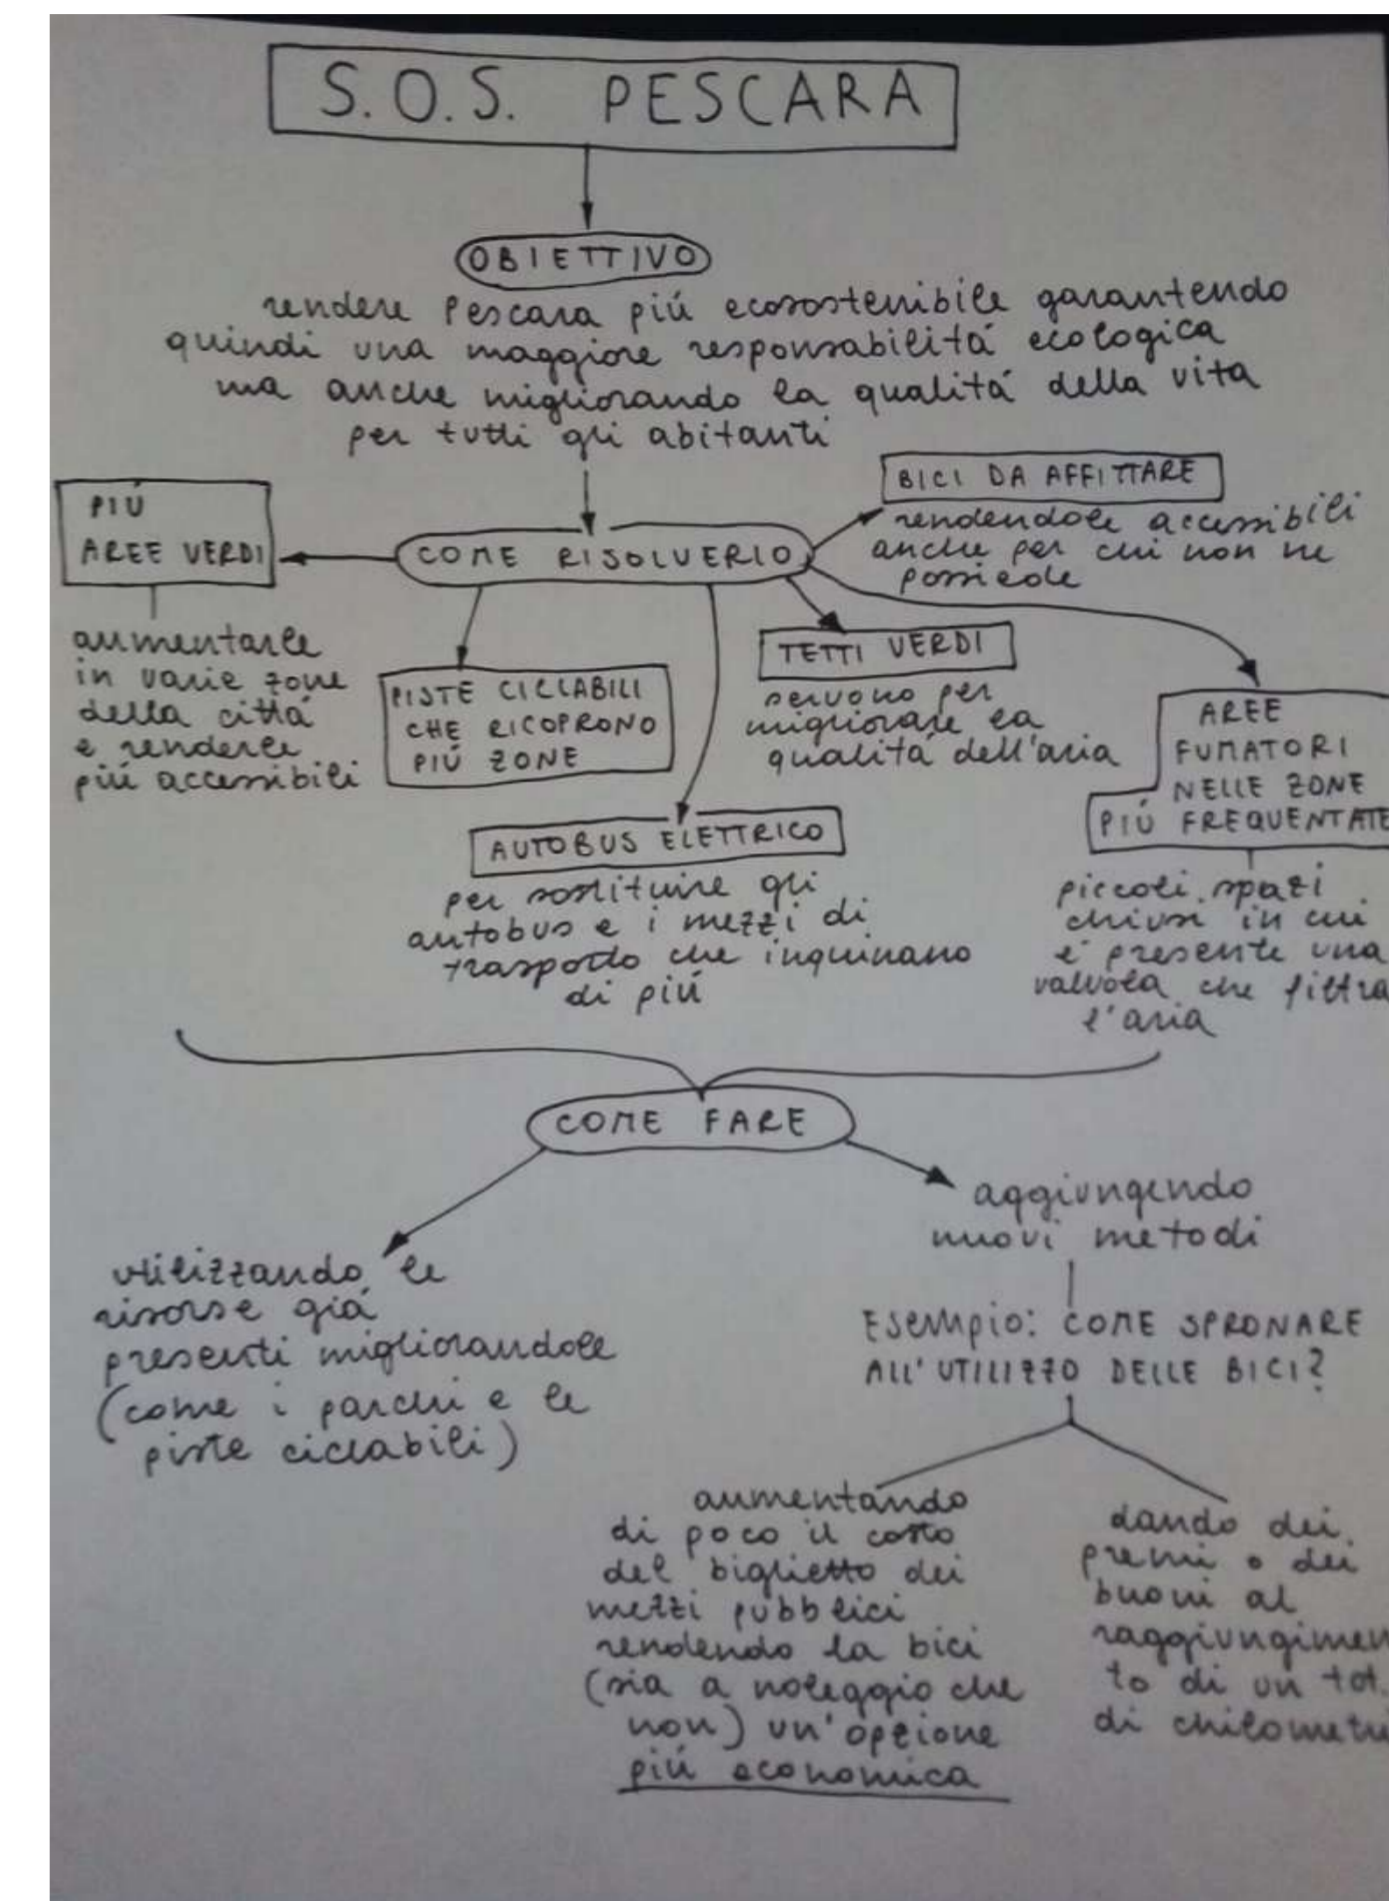 S.O.S. PESCARA
OBIETTIVO
rendere Pescara piú ecosostenibile garantendo
quindi una maggiore responsabilitá ecologica
ma anche migliorando la qualitá della vita
per tutti gli abitanti
COME RISOLVERLO
PIÚ
AREE VERDI
aumentarle
in varie zone
della cittá
e renderle
piú accessibili
PISTE CICLABILI
CHE RICOPRONO
PIÚ ZONE
AUTOBUS ELETTRICO
per sostituire gli
autobus e i mezzi di
trasporto che inquinano
di piú
TETTI VERDI
servono per
migliorare la
qualitá dell'aria
BICI DA AFFITTARE
rendendole accessibili
anche per chi non ne
possiede
AREE
FUMATORI
NELLE ZONE
PIÚ FREQUENTATE
piccoli spazi
chiusi in cui
é presente una
valvola che filtra
l'aria
COME FARE
utilizzando le
risorse giá
presenti migliorandole
(come i parchi e le
piste ciclabili)
aggiungendo
nuovi metodi
Esempio: COME SPRONARE
ALL'UTILIZZO DELLE BICI?
aumentando
di poco il costo
del biglietto dei
mezzi pubblici
rendendo la bici
(sia a noleggio che
non) un'opzione
piú economica
dando dei
premi o dei
buoni al
raggiungimen
to di un tot.
di chilometri